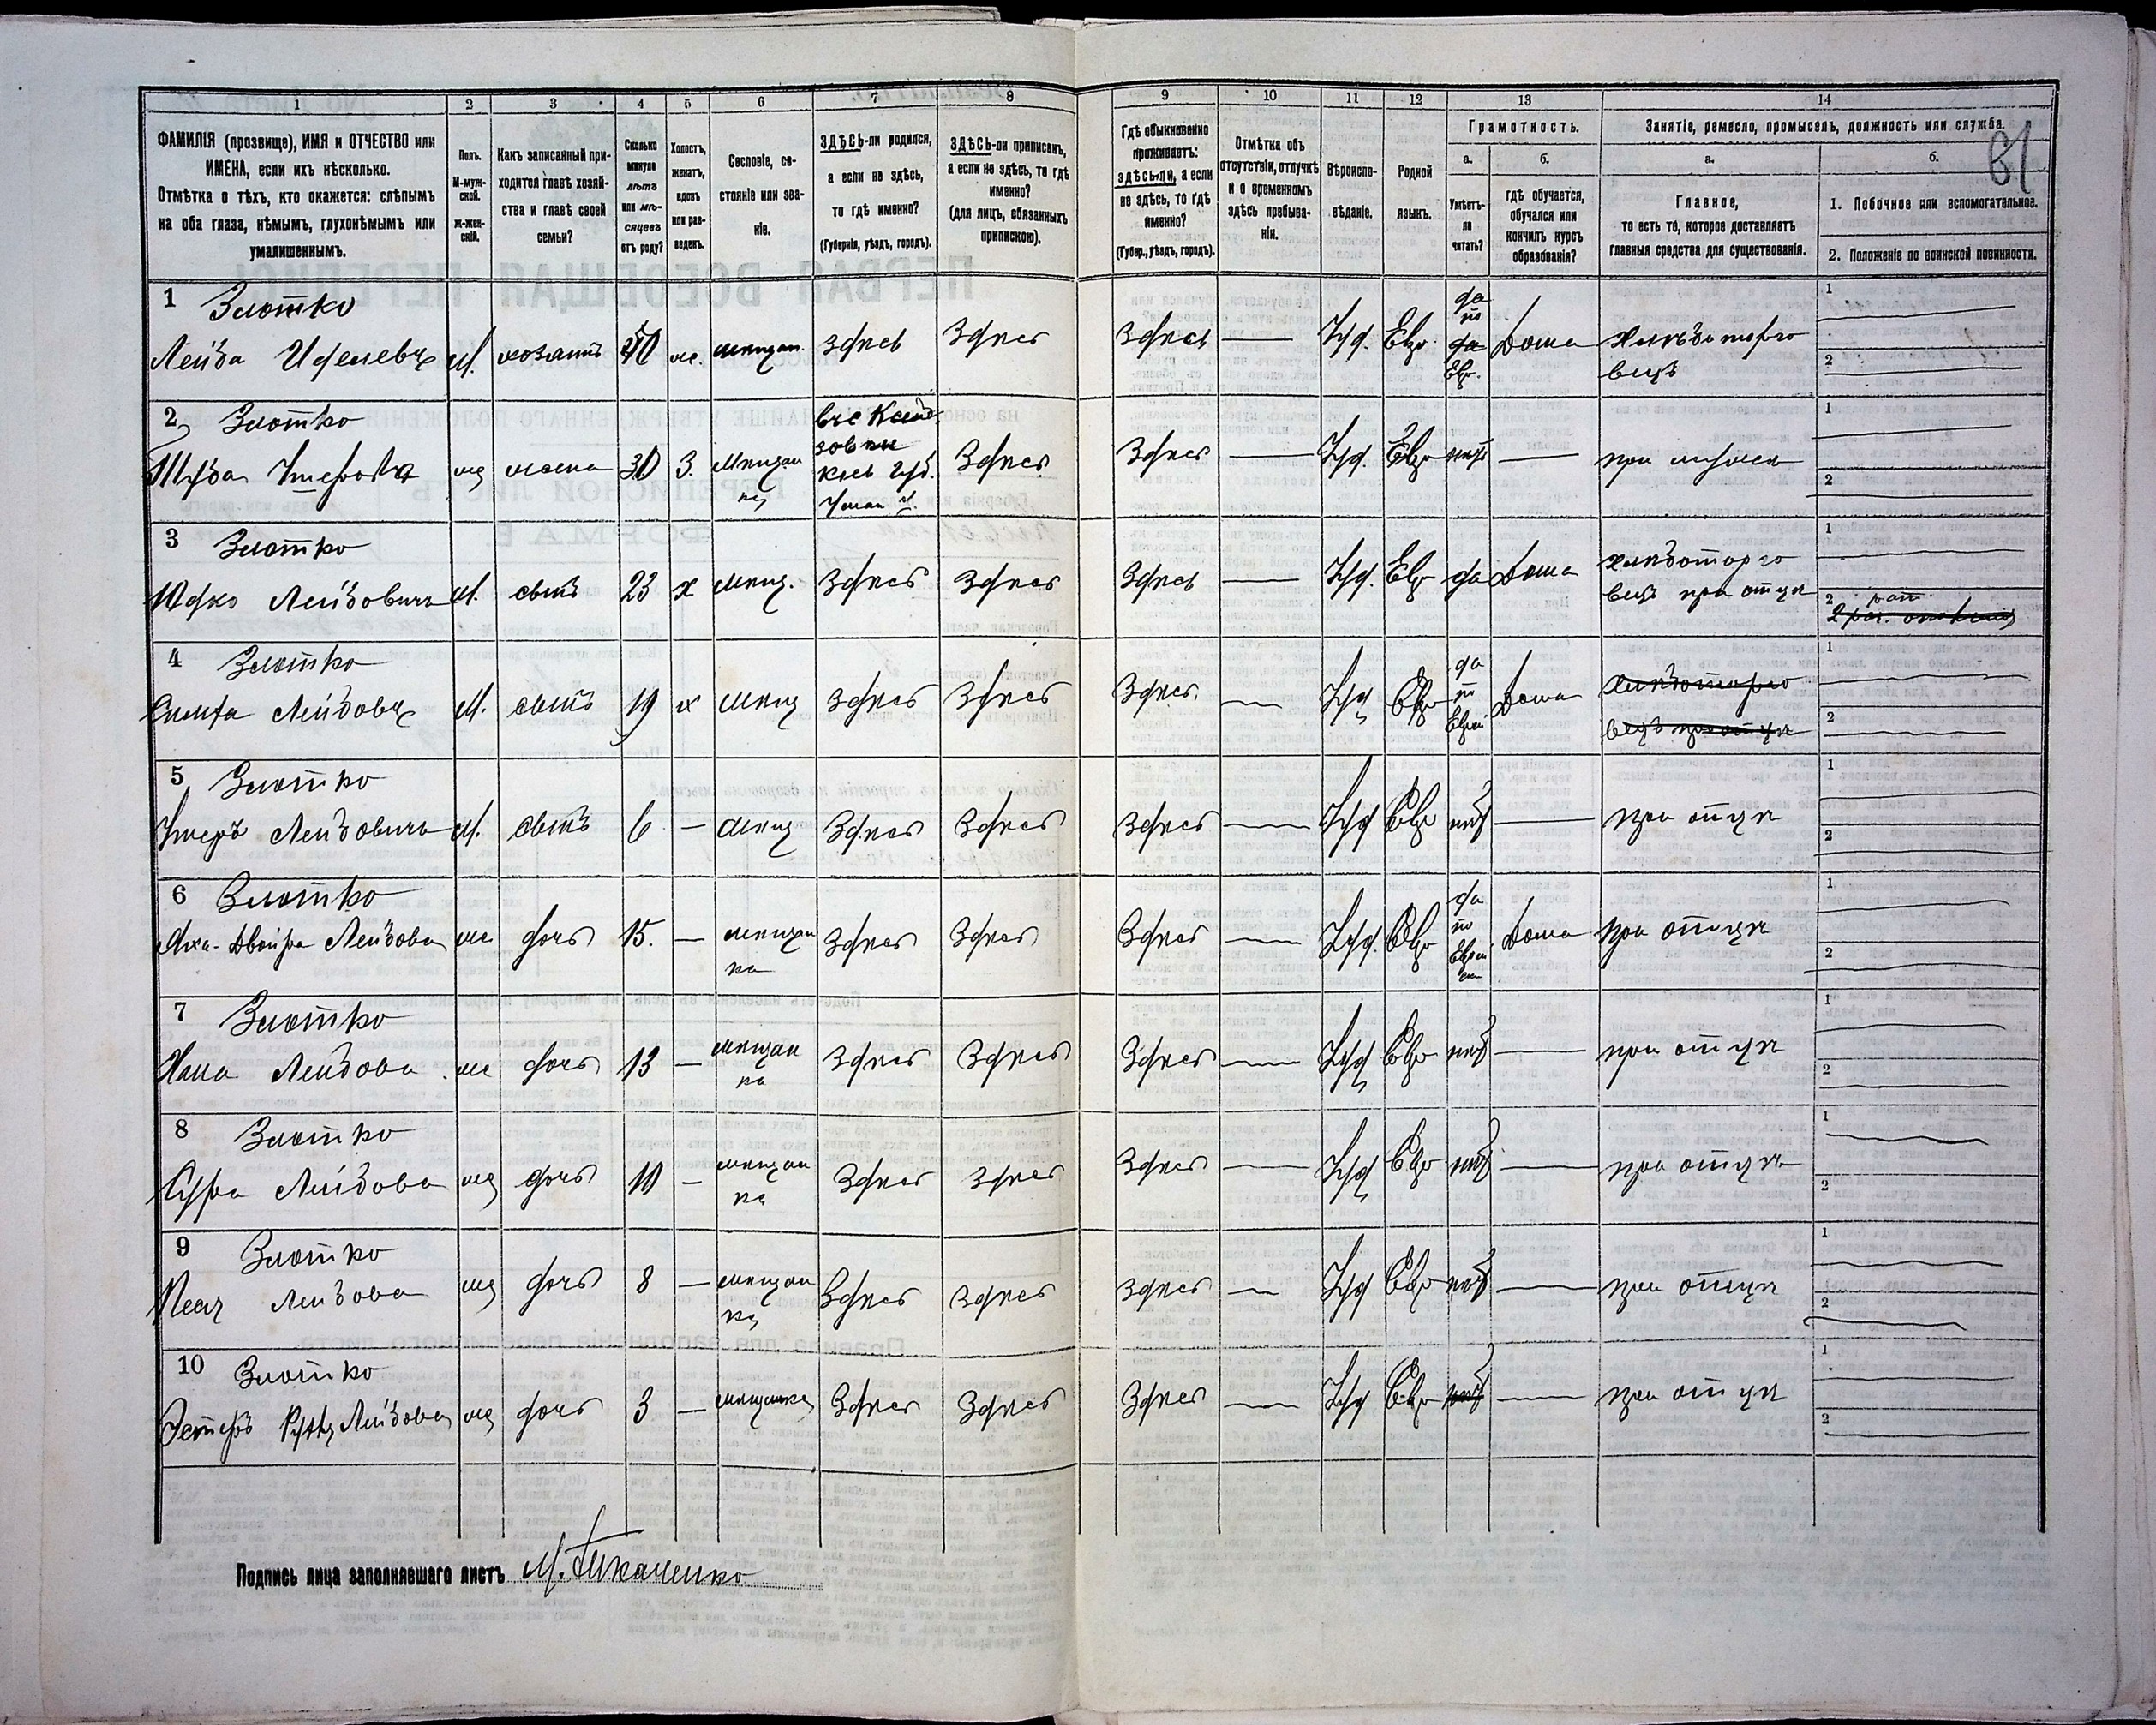 1 2 3 4 5 6 7 8 9 10 11 12 13 14
ФАМИЛІЯ (прозвище), ИМЯ и ОТЧЕСТВО или
ИМЕНА, если ихъ нѣсколько.
Отмѣтка о тѣхъ, кто окажется: слѣпымъ
на оба глаза, нѣмымъ, глухонѣмымъ или
умалишеннымъ.
Полъ.
М-муж-
ской.
ж-жен-
скій.
Какъ записанный при-
ходится главѣ хозяй-
ства и главѣ своей
семьи?
Сколько
минуло
лѣтъ
или мѣ-
сяцевъ
отъ роду?
Холостъ,
женатъ,
вдовъ
или раз-
веденъ.
Сословіе, со-
стояніе или зва-
ніе.
ЗДѢСЬ-ли родился,
а если не здѣсь,
то гдѣ именно?
(Губернія, уѣздъ, городъ).
ЗДѢСЬ-ли приписанъ,
а если не здѣсь, то гдѣ
именно?
(для лицъ, обязанныхъ
припискою).
Гдѣ обыкновенно
проживаетъ:
здѣсь-ли, а если
не здѣсь, то гдѣ
именно?
(Губер., уѣздъ, городъ).
Отмѣтка объ
отсутствіи, отлучкѣ
и о временномъ
здѣсь пребыва-
ніи.
Вѣроиспо-
вѣданіе.
Родной
языкъ.
Грамотность.
а.
Умѣетъ-
ли
читать?
б.
гдѣ обучается,
обучался или
кончилъ курсъ
образованія?
Занятіе, ремесло, промыселъ, должность или служба.
а.
Главное,
то есть то, которое доставляетъ
главныя средства для существованія.
б.
81
1. Побочное или вспомогательное.
2. Положеніе по воинской повинности.
1 Злотко
Лейба м. хозяинъ ж. мещан. Здѣсь Здѣсь Здѣсь — Іуд. Евр.
да
по
Евр. Дома Хлѣботорго
вецъ
1
2
2 Злотко
жена 30 З. Мѣщан
ка
Кіев Губ.
Уман у.
Здѣсь Здѣсь — Іуд. Евр нѣт — при мужѣ
1
2
3 Злотко
Юдко Лейбовичъ М. сынъ 23 х мѣщ. Здѣсь Здѣсь Здѣсь — Іуд. Евр да Дома хлѣботорго
вецъ при отцѣ
1
2
4 Злотко
Лейбовъ М. сынъ 19 х мѣщ Здѣсь Здѣсь Здѣсь — Іуд Евр
да
по
Еврей Дома Хлѣботорго
вецъ при отцѣ
1
2
5 Злотко
Ушеръ Лейбовичъ М. сынъ 6 — мѣщ Здѣсь Здѣсь Здѣсь — Іуд Евр нѣт — при отцѣ
1
2
6 Злотко
Двойра Лейбова ж дочь 15. — мѣщан
ка
Здѣсь Здѣсь Здѣсь — Іуд. Евр
да
по
Еврей
ски Дома при отцѣ
1
2
7 Злотко
Хана Лейбова ж дочь 13 — мѣщан
ка
Здѣсь Здѣсь Здѣсь — Іуд Евр нѣт — при отцѣ
1
2
8 Злотко
Сура Лейбова ж дочь 10 — мѣщан
ка
Здѣсь Здѣсь Здѣсь — Іуд Евр нѣт — при отцѣ
1
2
9 Злотко
Лейбова ж дочь 8 — мѣщан
ка
Здѣсь Здѣсь Здѣсь — Іуд Евр нѣт — при отцѣ
1
2
10 Злотко
Эстеръ Лейбова ж дочь 3 — мѣщанка Здѣсь Здѣсь Здѣсь — Іуд Евр нѣт — при отцѣ
1
2
Подпись лица заполнявшаго листъ М.